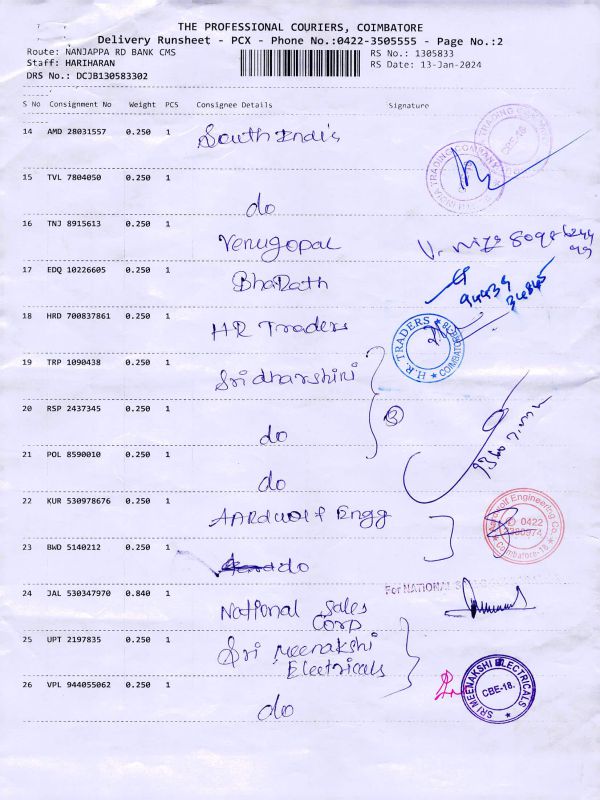 THE PROFESSIONAL COURIERS, COIMBATORE
Delivery Runsheet - PCX - Phone No.:0422-3505555 - Page No.:2
Route: NANJAPPA RD BANK CMS RS No.: 1305833
Staff: HARIHARAN RS Date: 13-Jan-2024
DRS No.: DCJB130583302
S No Consignment No Weight PCS Consignee Details Signature
14 AMD 28031557 0.250 1 South India
15 TVL 7804050 0.250 1 do
16 TNJ 8915613 0.250 1 Venugopal
17 EDQ 10226605 0.250 1 Bharath
18 HRD 700837861 0.250 1 HR Traders
H.R. TRADERS COIMBATORE
19 TRP 1090438 0.250 1 Sridharshini
20 RSP 2437345 0.250 1 do
3
21 POL 8590010 0.250 1 do
22 KUR 530978676 0.250 1 AARdwolf Engg
Aardwolf Engineering Co. 0422 Coimbatore-18
23 BWD 5140212 0.250 1 do
24 JAL 530347970 0.840 1 National Sales Corp
For NATIONAL
25 UPT 2197835 0.250 1 Sri Meenakshi Electricals
26 VPL 944055062 0.250 1 do
SRI MEENAKSHI ELECTRICALS CBE-18.